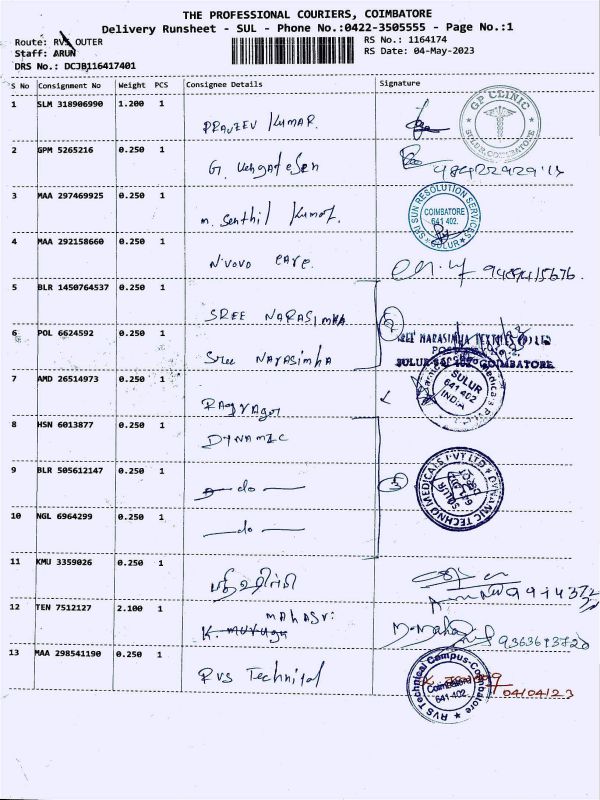 THE PROFESSIONAL COURIERS, COIMBATORE
Delivery Runsheet - SUL - Phone No.:0422-3505555 - Page No.:1
Route: RVS OUTER
RS No.: 1164174
Staff: ARUN
RS Date: 04-May-2023
DRS No.: DCJB116417401
S No Consignment No Weight PCS Consignee Details Signature
1 SLM 318906990 1.200 1
PRAVEEV KUMAR.
GP CLINIC
SULUR, COIMBATORE
2 GPM 5265216 0.250 1
G. Vengatesan
3 MAA 297469925 0.250 1
m. Senthil Kumar.
SRI SUN RESOLUTION SERVICES
COIMBATORE
641 402.
SULUR
4 MAA 292158660 0.250 1
Nuovo care.
9489415676.
5 BLR 1450764537 0.250 1
SREE NARASIMHA
2
6 POL 6624592 0.250 1
Sree Narasimha
SREE NARASIMHA TEXTILES (P) LTD
SULUR COIMBATORE
7 AMD 26514973 0.250 1
SULUR
641 402
INDIA
8 HSN 6013877 0.250 1
DYNAMIC
9 BLR 505612147 0.250 1
do
3
DYNAMIC TECHNO MEDICALS PVT LTD
SULUR
10 NGL 6964299 0.250 1
do
11 KMU 3359026 0.250 1
12 TEN 7512127 2.100 1
mahasri
K. murugu
9363613720
13 MAA 298541190 0.250 1
RVS Technical
RVS Technical Campus-Coimbatore
Coimbatore
641-402.
04/04/23